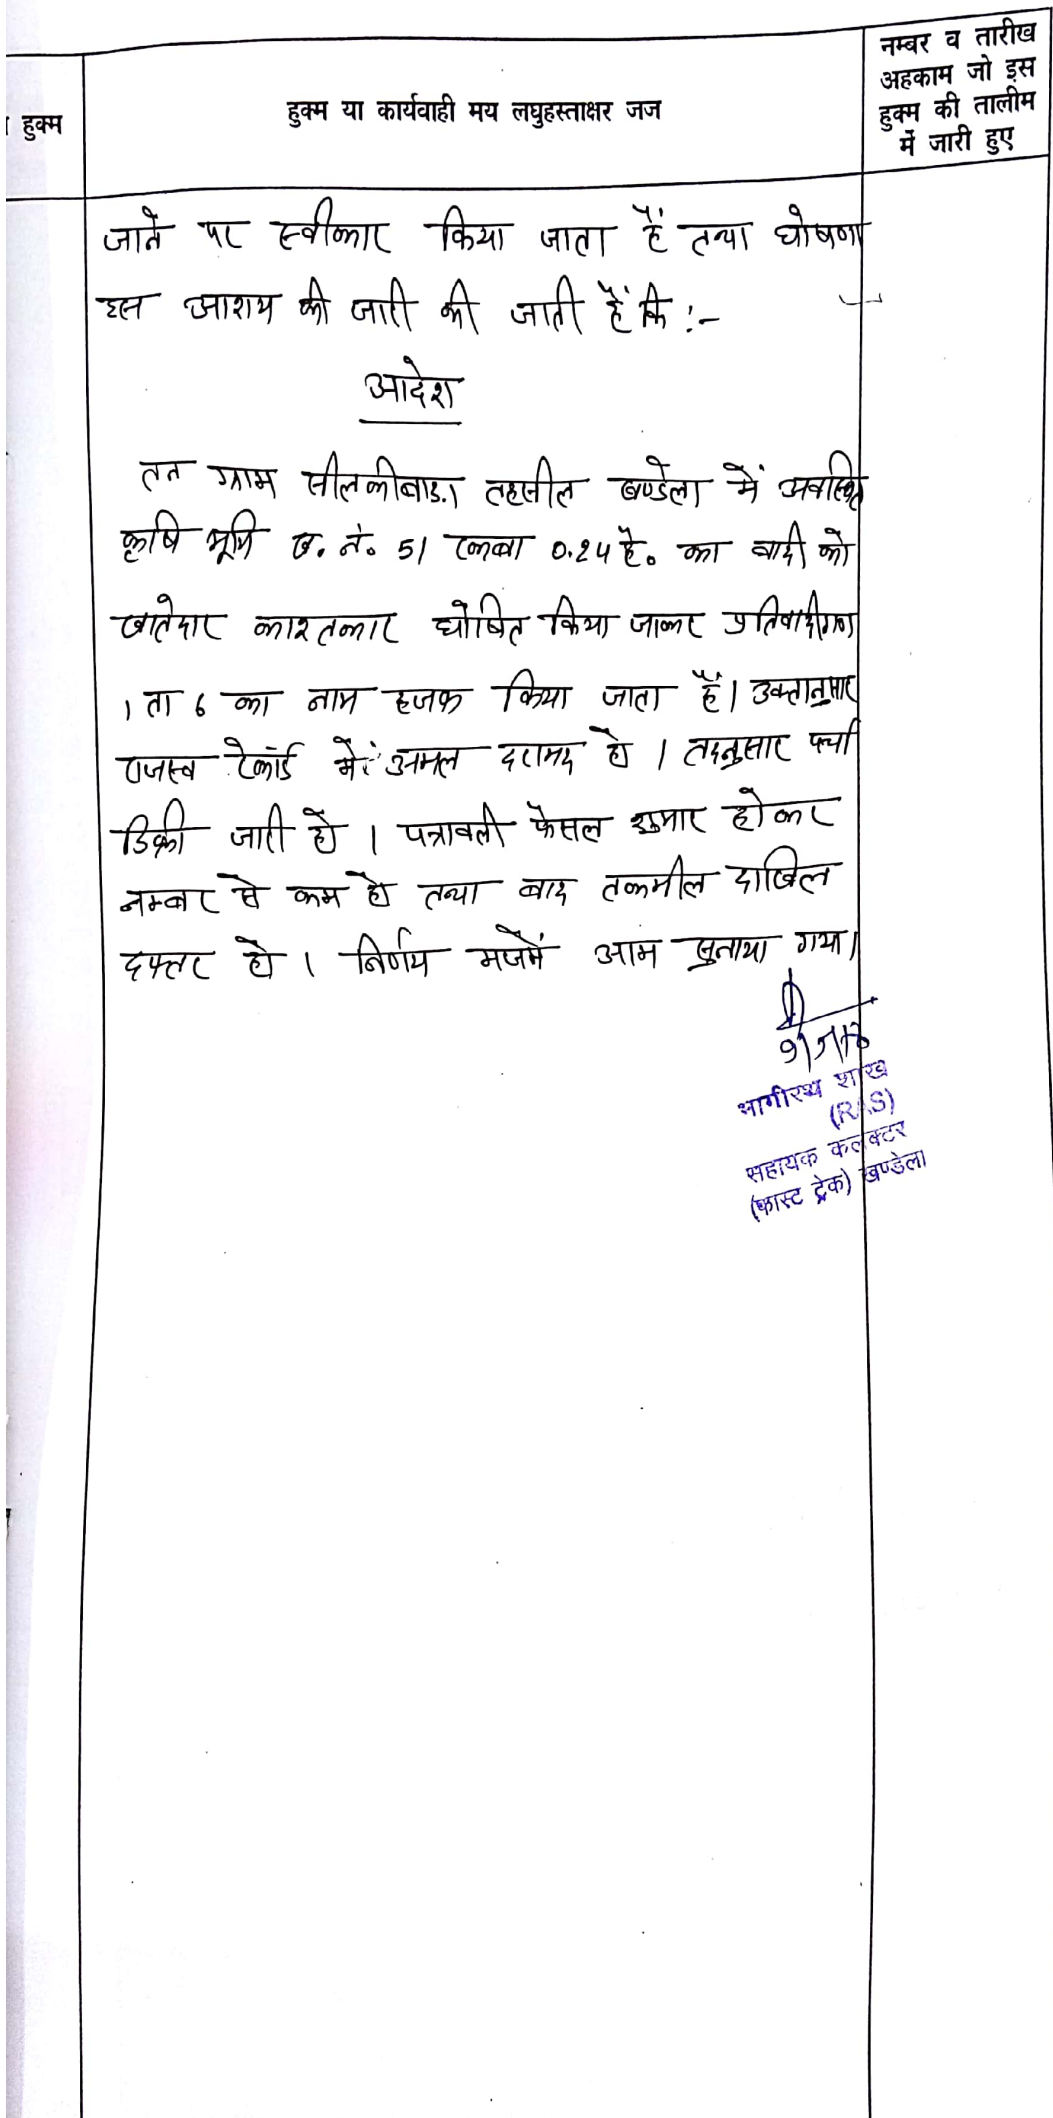 हुक्म
हुक्म या कार्यवाही मय लघुहस्ताक्षर जज
नम्बर व तारीख
अहकाम जो इस
हुक्म की तालीम
में जारी हुए
जाने पर स्वीकार किया जाता हैं तथा घोषणा
इस आशय की जारी की जाती हैं कि :-
आदेश
तन ग्राम तहसील खण्डेला में अवस्थित
कृषि भूमि ख. नं. 51 रकबा 0.24 है. का वादी को
खातेदार काश्तकार घोषित किया जाकर प्रतिवादीगण
1 ता 6 का नाम हजफ किया जाता हैं। उक्तानुसार
राजस्व रेकॉर्ड में अमल दरामद हो । तदनुसार पर्चा
डिक्री जारी हो । पत्रावली फैसल शुमार होकर
नम्बर से कम हो तथा बाद तकमील दाखिल
दफ्तर हो । निर्णय मजमें आम सुनाया गया।
भागीरथ शाख
(RAS)
सहायक कलक्टर
(फास्ट ट्रेक) खण्डेला